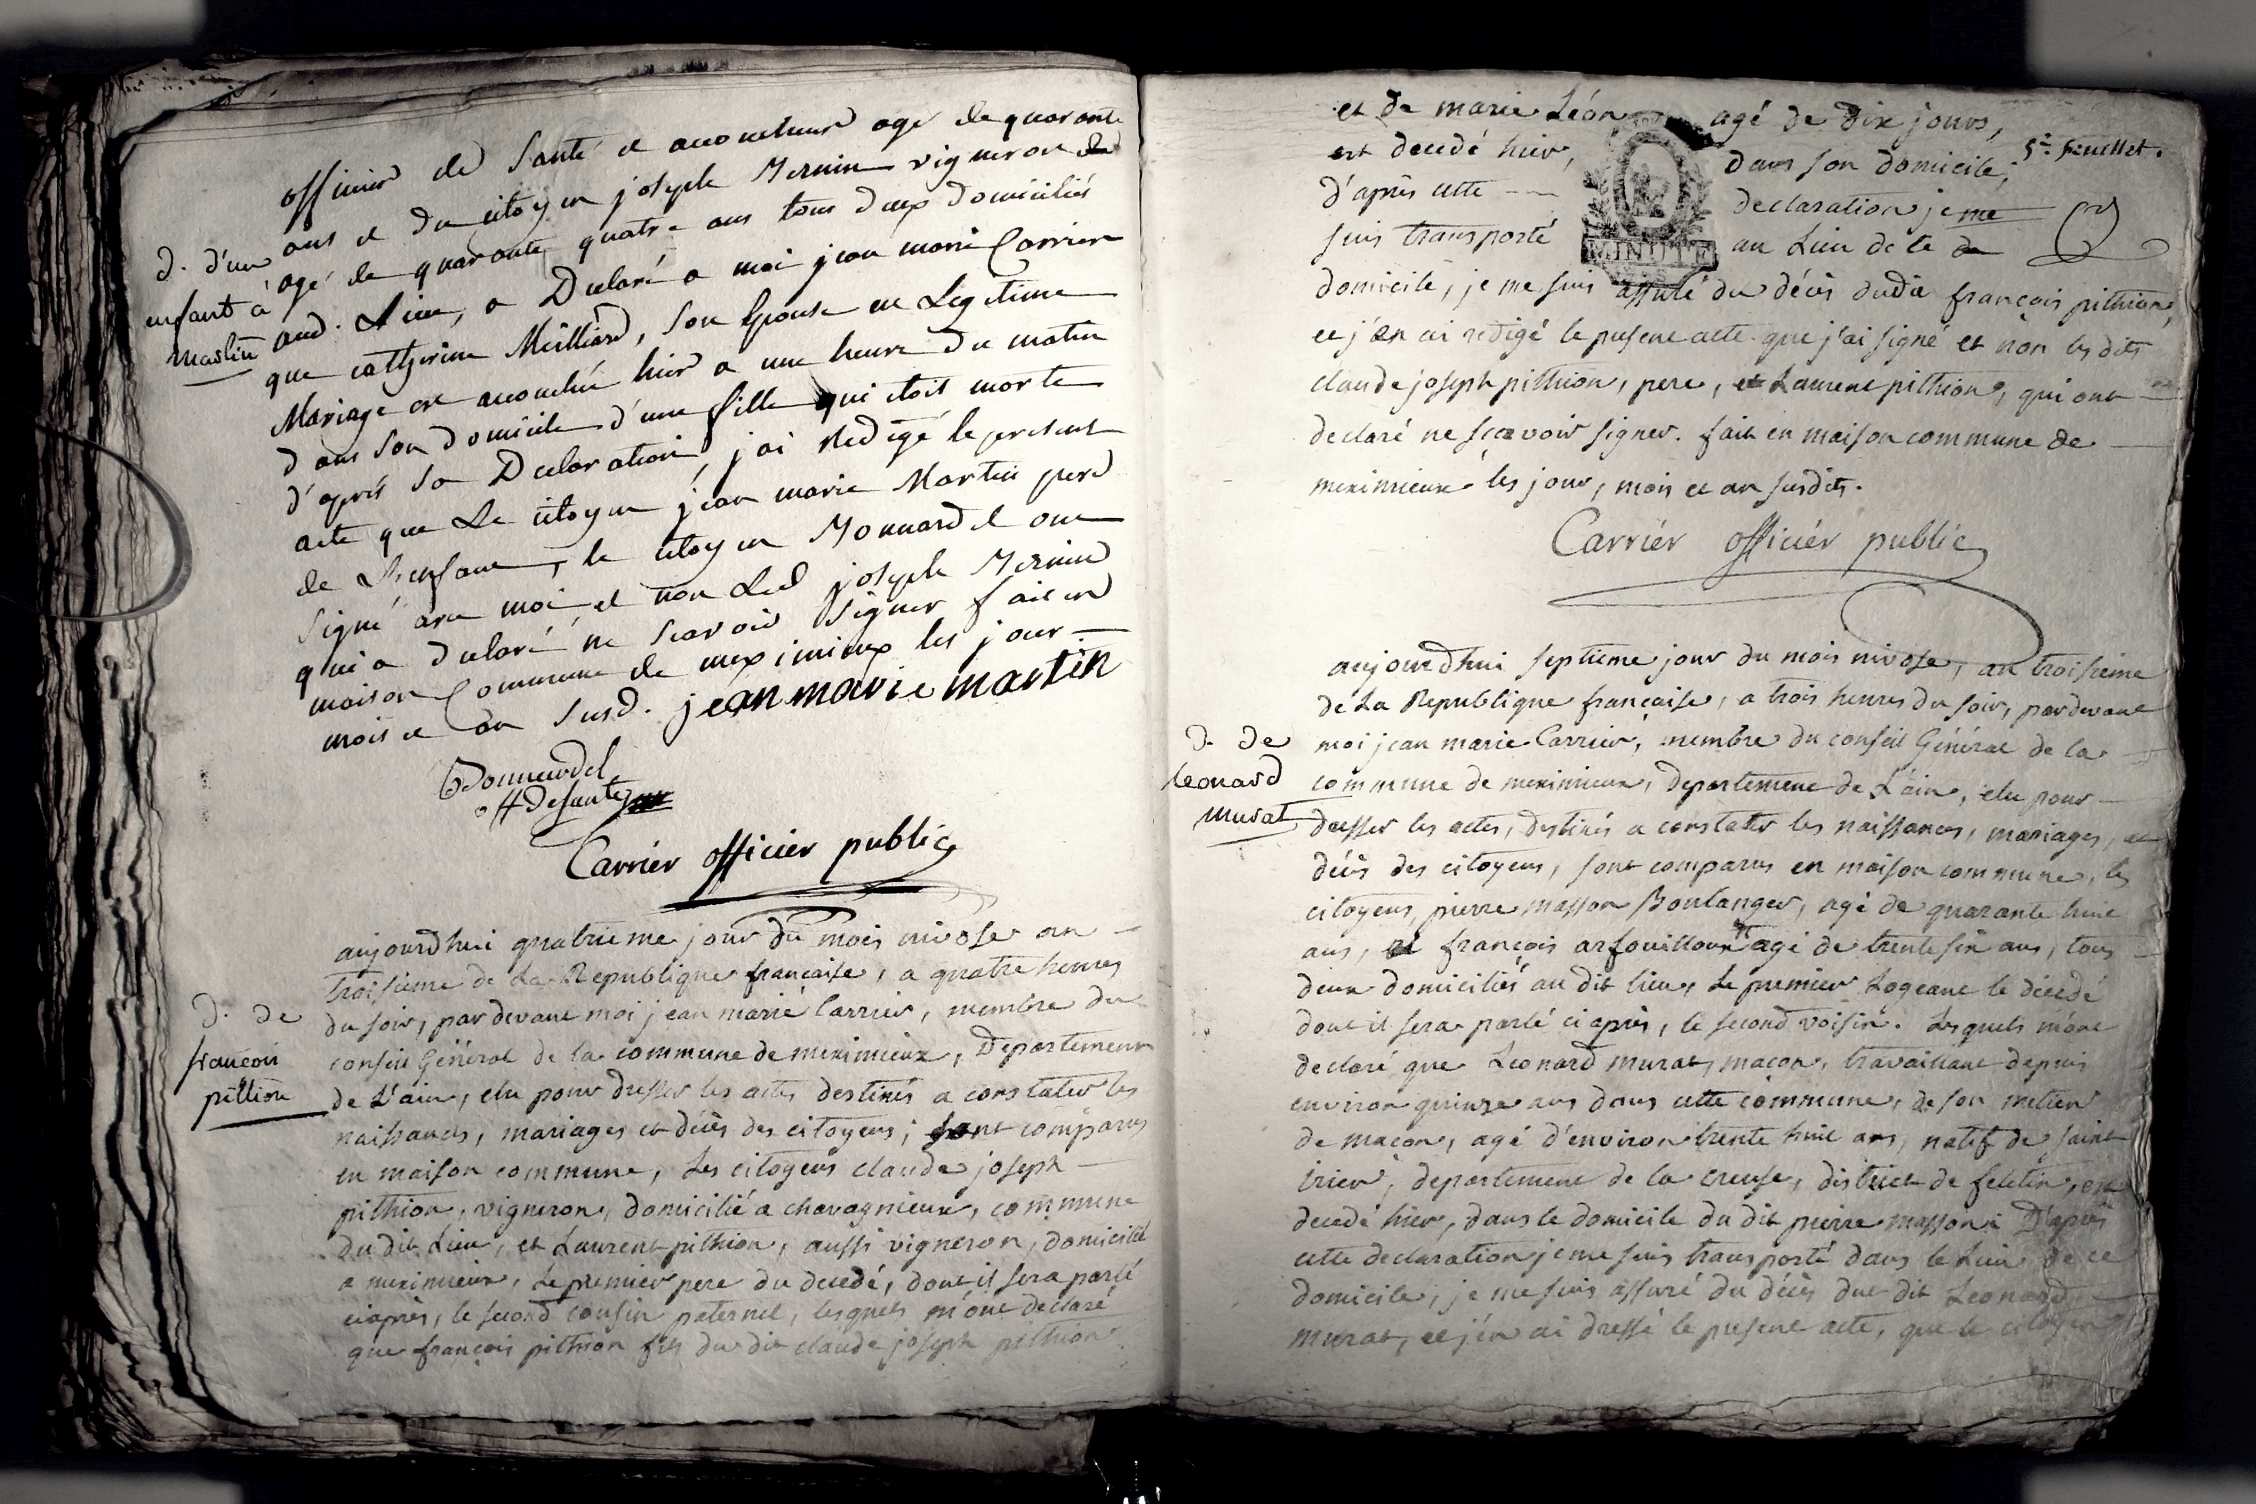 officier de Santé et accoucheur agé de quarante
ans et du citoyen joseph vigneron
agé de quarante quatre ans tous deux domiciliés
aud. Lieu, a Declaré a moi jean marie Carrier
que catherine Milliard, son Epouse en Legitime
Mariage est accouchée hier a une heure du matin
dans son domicile d'une fille qui etoit morte
d'après sa Declaration, j'ai redigé le present
acte que Le citoyen jean marie Martin pere
de L'enfant, le citoyen Bonnardel ont
signé avec moi et non Led joseph
qui a declaré ne scavoir signer fait en
maison Commune de meximieux les jour
mois et an susd. jean marie martin
d. d'un
enfant à
Martin
Bonnardel
off de santé
Carriér officiér public
aujourdhui quatrieme jour du mois nivose an
troisieme de La Republique francaise, a quatre heures
du soir, pardevant moi jean marie Carrier, membre du
conseil Général de la commune de meximieux, Departement
de L'ain, elu pour dresser les actes destinés a constater les
naissances, mariages et décès des citoyens; sont comparus
en maison commune, Les citoyens claude joseph
pithion, vigneron, domicilié a chavagnieux, commune
du dit Lieu, et Laurent pithion, aussi vigneron, domicilié
a meximieux, Le premier pere du decedé, dont il sera parlé
ciaprès, le second cousin paternel, lesquels m'ont declaré
que françois pithion fils du dit claude joseph pithion
d. de
françois
pithion
5e. feuillet.
et de marie Léon agé de dix jours,
est decedé hier, dans son domicile,
d'après cette declaration je me
suis transporté au Lieu de ce
MINUTE
domicile, je me suis assuré du décès dudit françois pithion,
et j'en ai redigé le present acte que j'ai signé et non les dits
claude joseph pithion, pere, et Laurent pithion, qui ont
declaré ne sçavoir signer. fait en maison commune de
meximieux les jour, mois et an susdits.
Carriér officiér public
aujourdhui septieme jour du mois nivose, an troisieme
de La Republique française, a trois heures du soir, pardevant
moi jean marie Carrier, membre du conseil Général de la
commune de meximieux, departement de L'ain, elu pour
dresser les actes, destinés a constater les naissances, mariages, et
décès des citoyens, sont comparus en maison commune, les
citoyens pierre masson Boulanger, agé de quarante huit
ans, et françois arfouilloux agé de trente six ans, tous
deux domiciliés au dit lieu, Le premier Logeant le décédé
dont il sera parlé ci après, le second voisin. Lesquels m'ont
declaré que Leonard murat, macon, travaillant depuis
environ quinze ans dans cette commune, de son metier
de macon, agé d'environ trente huit ans, natif de saint
irier, departement de la creuse, district de feletin, est
decedé hier, dans le domicile du dit pierre masson. D'après
cette declaration je me suis transporté dans le Lieu de ce
domicile, je me suis assuré du décès du dit Leonard
murat, et j'en ai dressé le present acte, que le citoyen
d. de
Leonard
murat